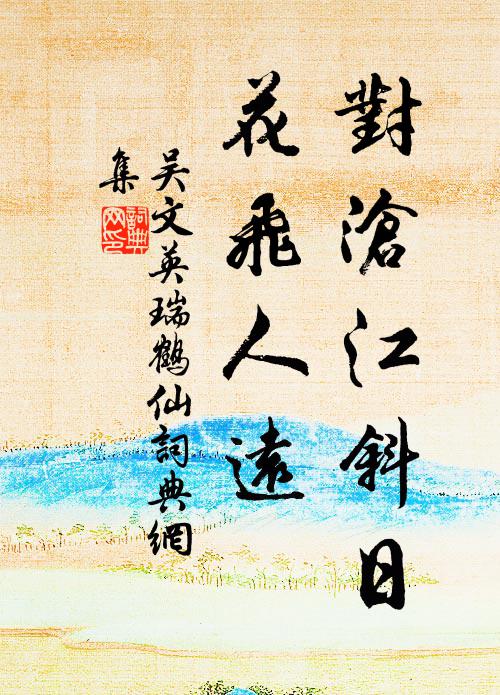 對滄江斜日
花飛人遠
吴文英瑞鶴仙詞典網
集
詞典网印